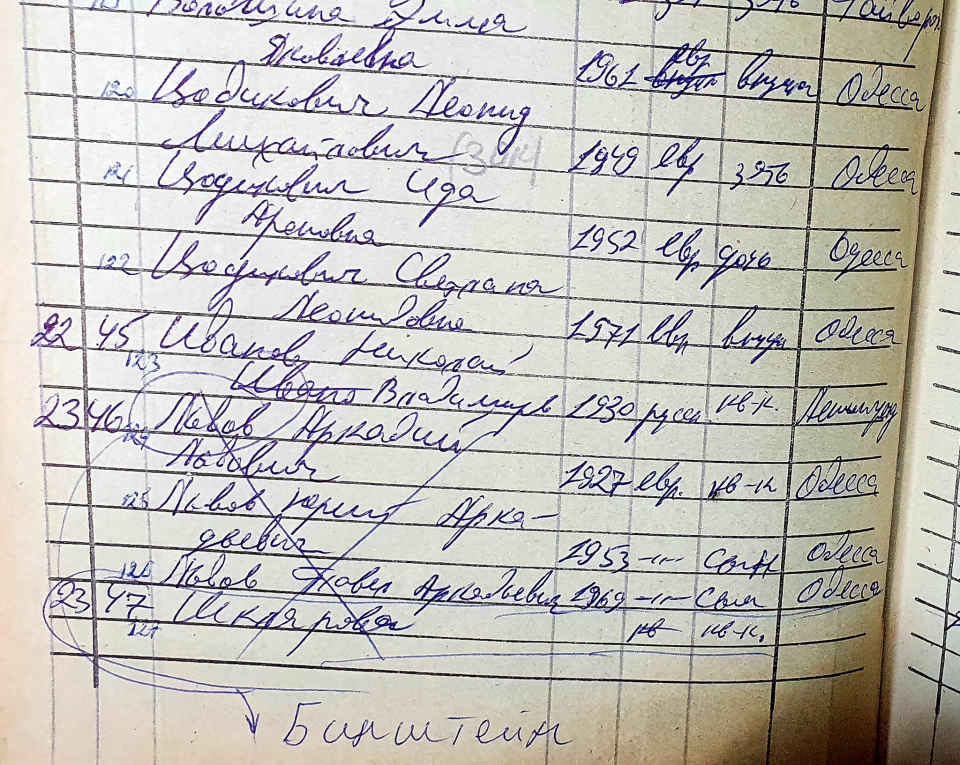 119 Волошина Эмма зять Гайворон
Яковлевна 1961 евр внучка Одесса
120 Цодикович Леонид
Михайлович 1949 евр зять Одесса
121 Цодикович Ида
Ароновна 1952 евр дочь Одесса
122 Цодикович Светлана
Леонидовна 1971 евр внучка Одесса
22 45 Иванов Николай
123 Владимиров 1930 русск. кв-к. Ленинград
23 46 Львов Аркадий
124 Львович 1927 евр. кв-к Одесса
125 Львов Юрий Арка-
дьевич 1953 -"- сын Одесса
126 Львов Павел Аркадьевич 1969 -"- сын Одесса
23 47 Шклярова
127 кв кв-к.
Бинштейн